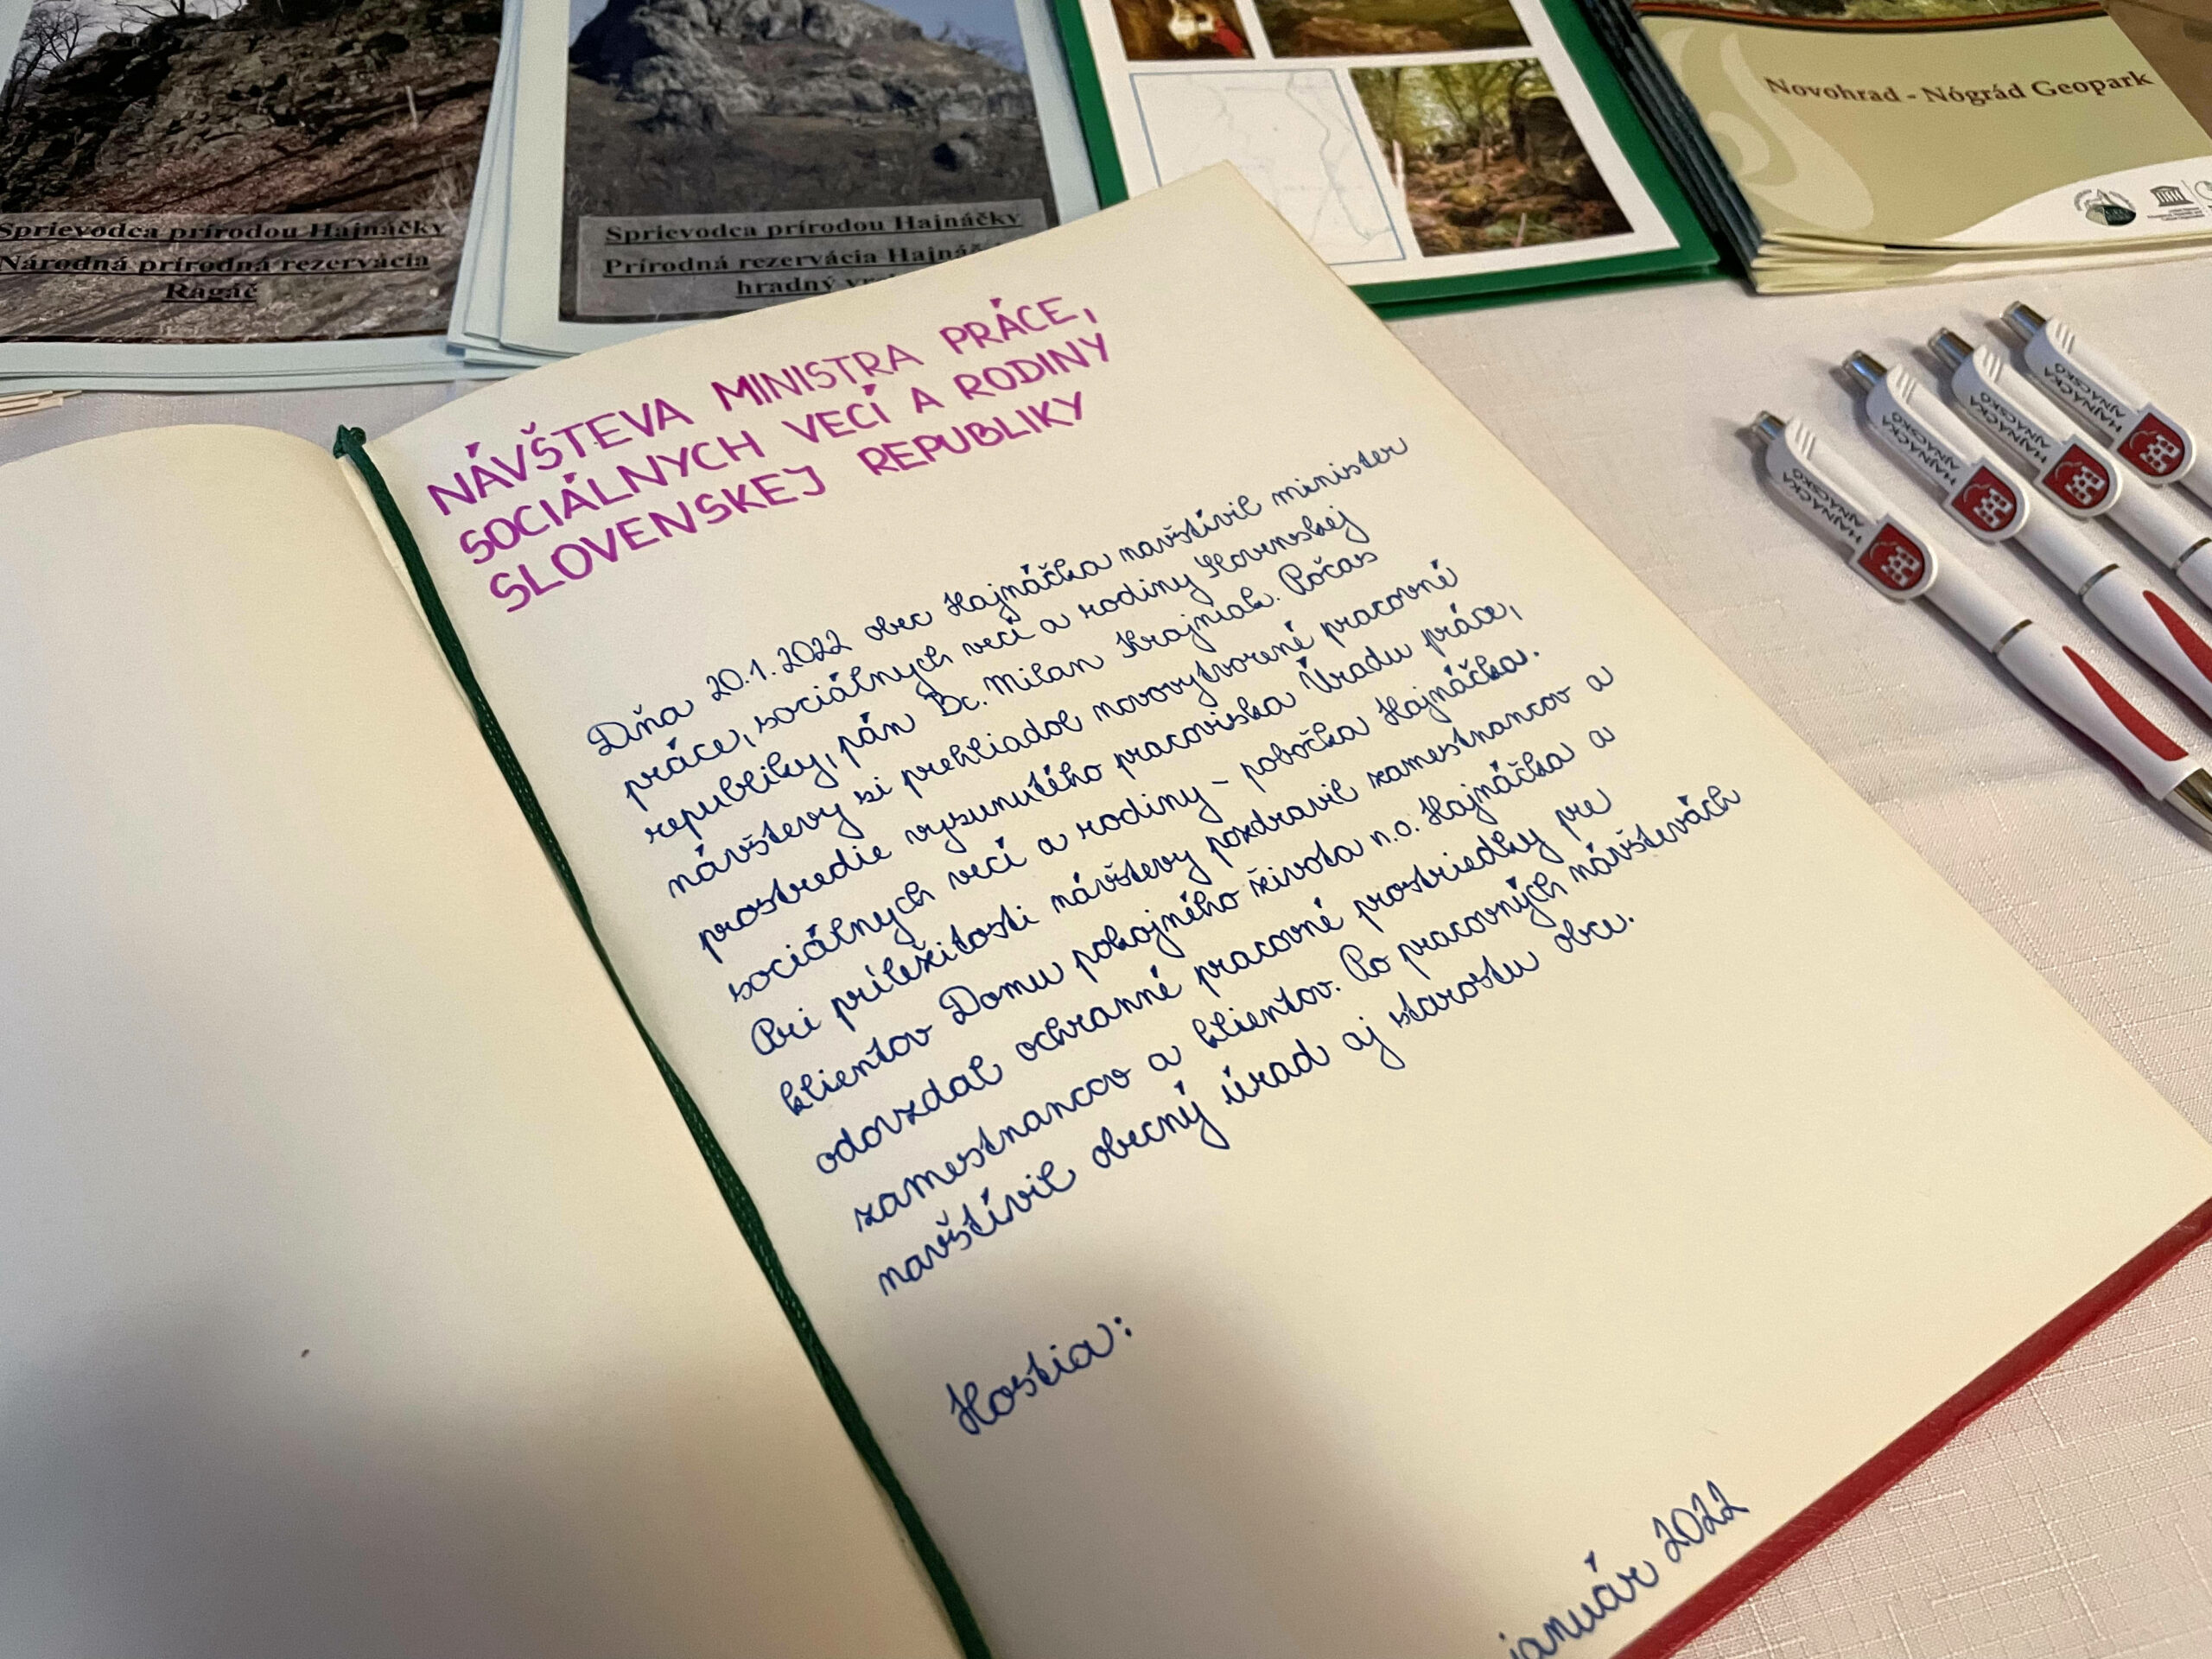 Sprievodca prírodou Hajnáčky
Národná prírodná rezervácia
Ragáč
Sprievodca prírodou Hajnáčky
Prírodná rezervácia
hradný
Novohrad - Nógrád Geopark
NÁVŠTEVA MINISTRA PRÁCE,
SOCIÁLNYCH VECÍ A RODINY
SLOVENSKEJ REPUBLIKY
Dňa 20.1.2022 obec Hajnáčka navštívil minister
práce, sociálnych vecí a rodiny Slovenskej
republiky, pán Bc. Milan Krajniak. Počas
návštevy si prehliadol novovytvorené pracovné
prostredie vysunutého pracoviska Úradu práce,
sociálnych vecí a rodiny - pobočka Hajnáčka.
Pri príležitosti návštevy pozdravil zamestnancov a
klientov Domu pokojného života n.o. Hajnáčka a
odovzdal ochranné pracovné prostriedky pre
zamestnancov a klientov. Po pracovných návštevách
navštívil obecný úrad aj starostu obce.
Hostia:
január 2022
HAJNÁČKA
AJNÁCSKŐ
HAJNÁČKA
AJNÁCSKŐ
HAJNÁČKA
AJNÁCSKŐ
HAJNÁČKA
AJNÁCSKŐ